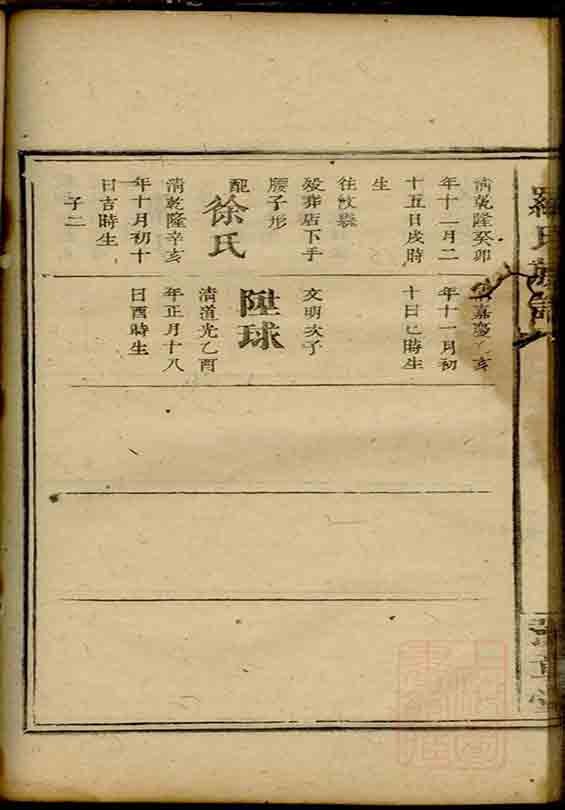 羅氏族譜
清乾隆癸卯
年十二月二
十五日戌時
生
往
殁葬店下手
腰子形
配徐氏
清乾隆辛亥
年十月初十
日吉時生
子二
嘉慶乙亥
年十一月初
十日巳時生
文明次子
陞球
清道光乙酉
年正月十八
日酉時生